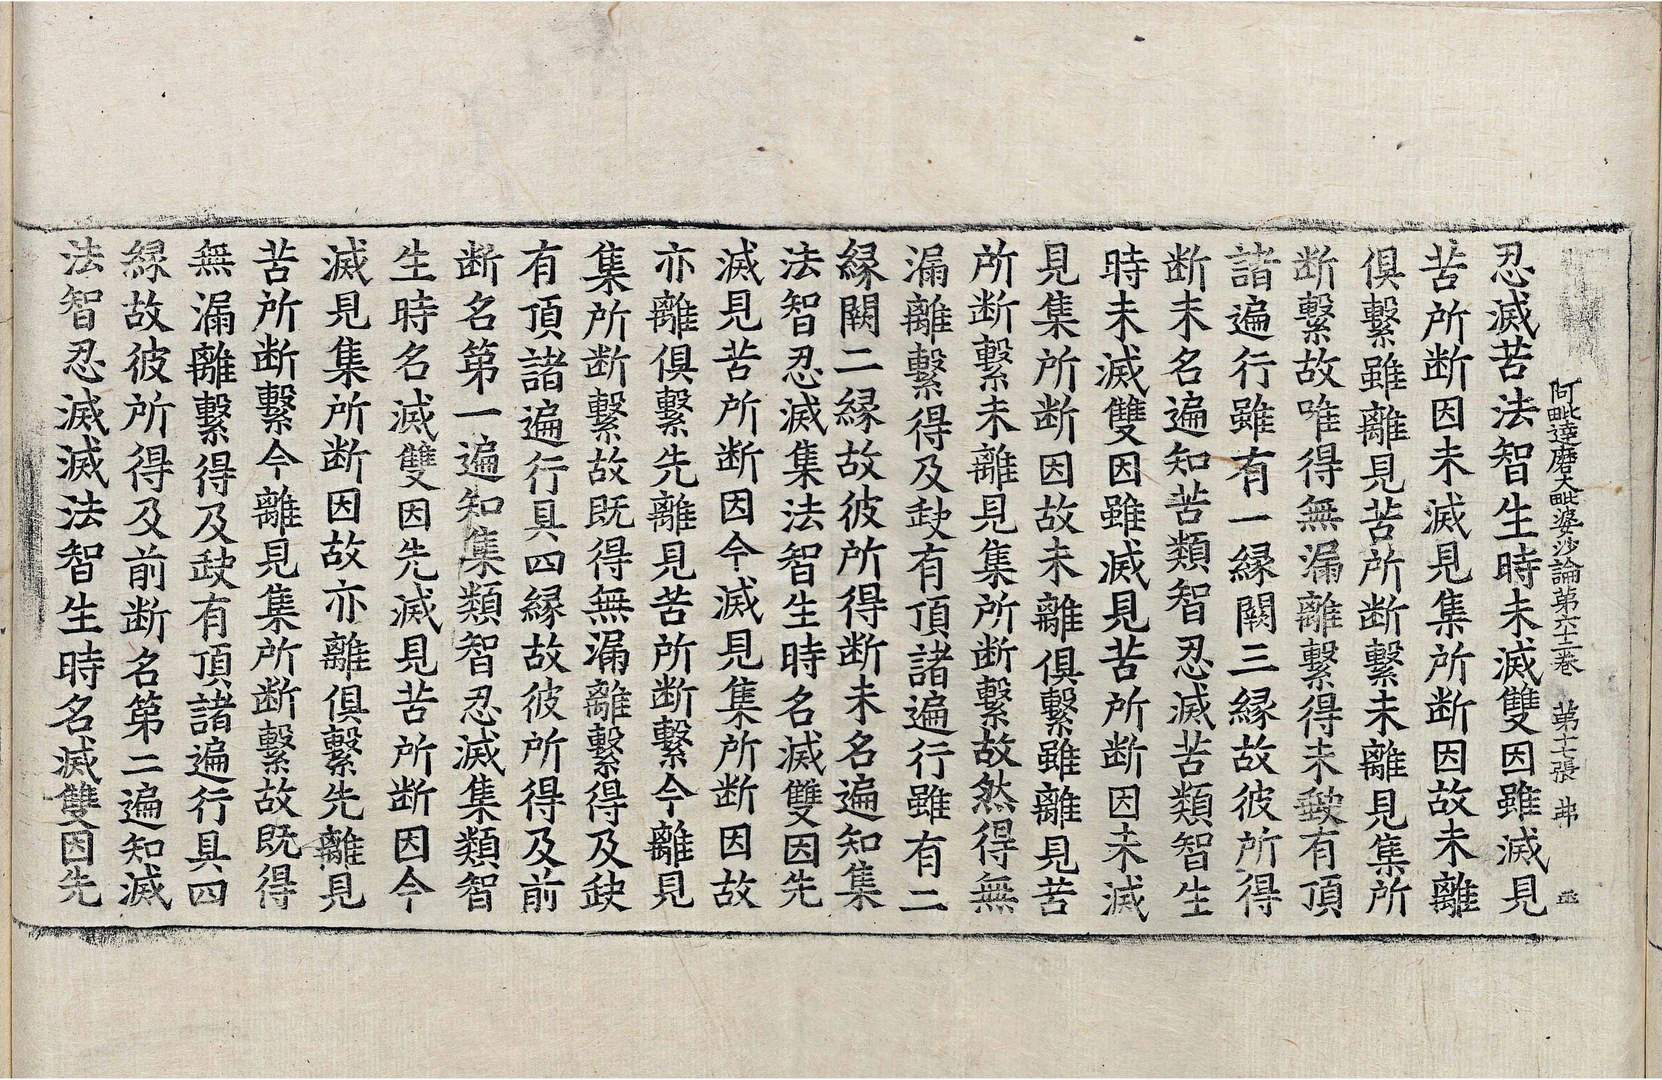 阿毗達磨大毗婆沙論第六十二卷 第十二張 弗
忍滅苦法智生時未滅雙因雖滅見
苦所断因未滅見集所断因故未離
俱繫雖離見苦所断繫未離見集所
断繫故唯得無漏離繫得未䴵有頂
諸遍行雖有一縁闕三縁故彼所得
断未名遍知苦類智忍滅苦類智生
時未滅雙因雖滅見苦所断因未滅
見集所断因故未離俱繫雖離見苦
所断繫未離見集所断繫故然得無
漏離繫得及缺有頂諸遍行雖有二
縁闕二縁故彼所得断未名遍知集
法智忍滅集法智生時名滅雙因先
滅見苦所断因今滅見集所断因故
亦離俱繫先離見苦所断繫今離見
集所断繫故既得無漏離繫得及缺
有頂諸遍行具四縁故彼所得及前
断名第一遍知集類智忍滅集類智
生時名滅雙因先滅見苦所断因今
滅見集所断因故亦離俱繫先離見
苦所断繫今離見集所断繫故既得
無漏離繫得及缺有頂諸遍行具四
縁故彼所得及前断名第二遍知滅
法智忍滅滅法智生時名滅雙因先